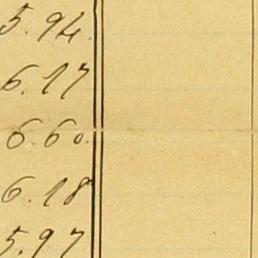 5.94.
6.17
6.60.
6.18
5.97